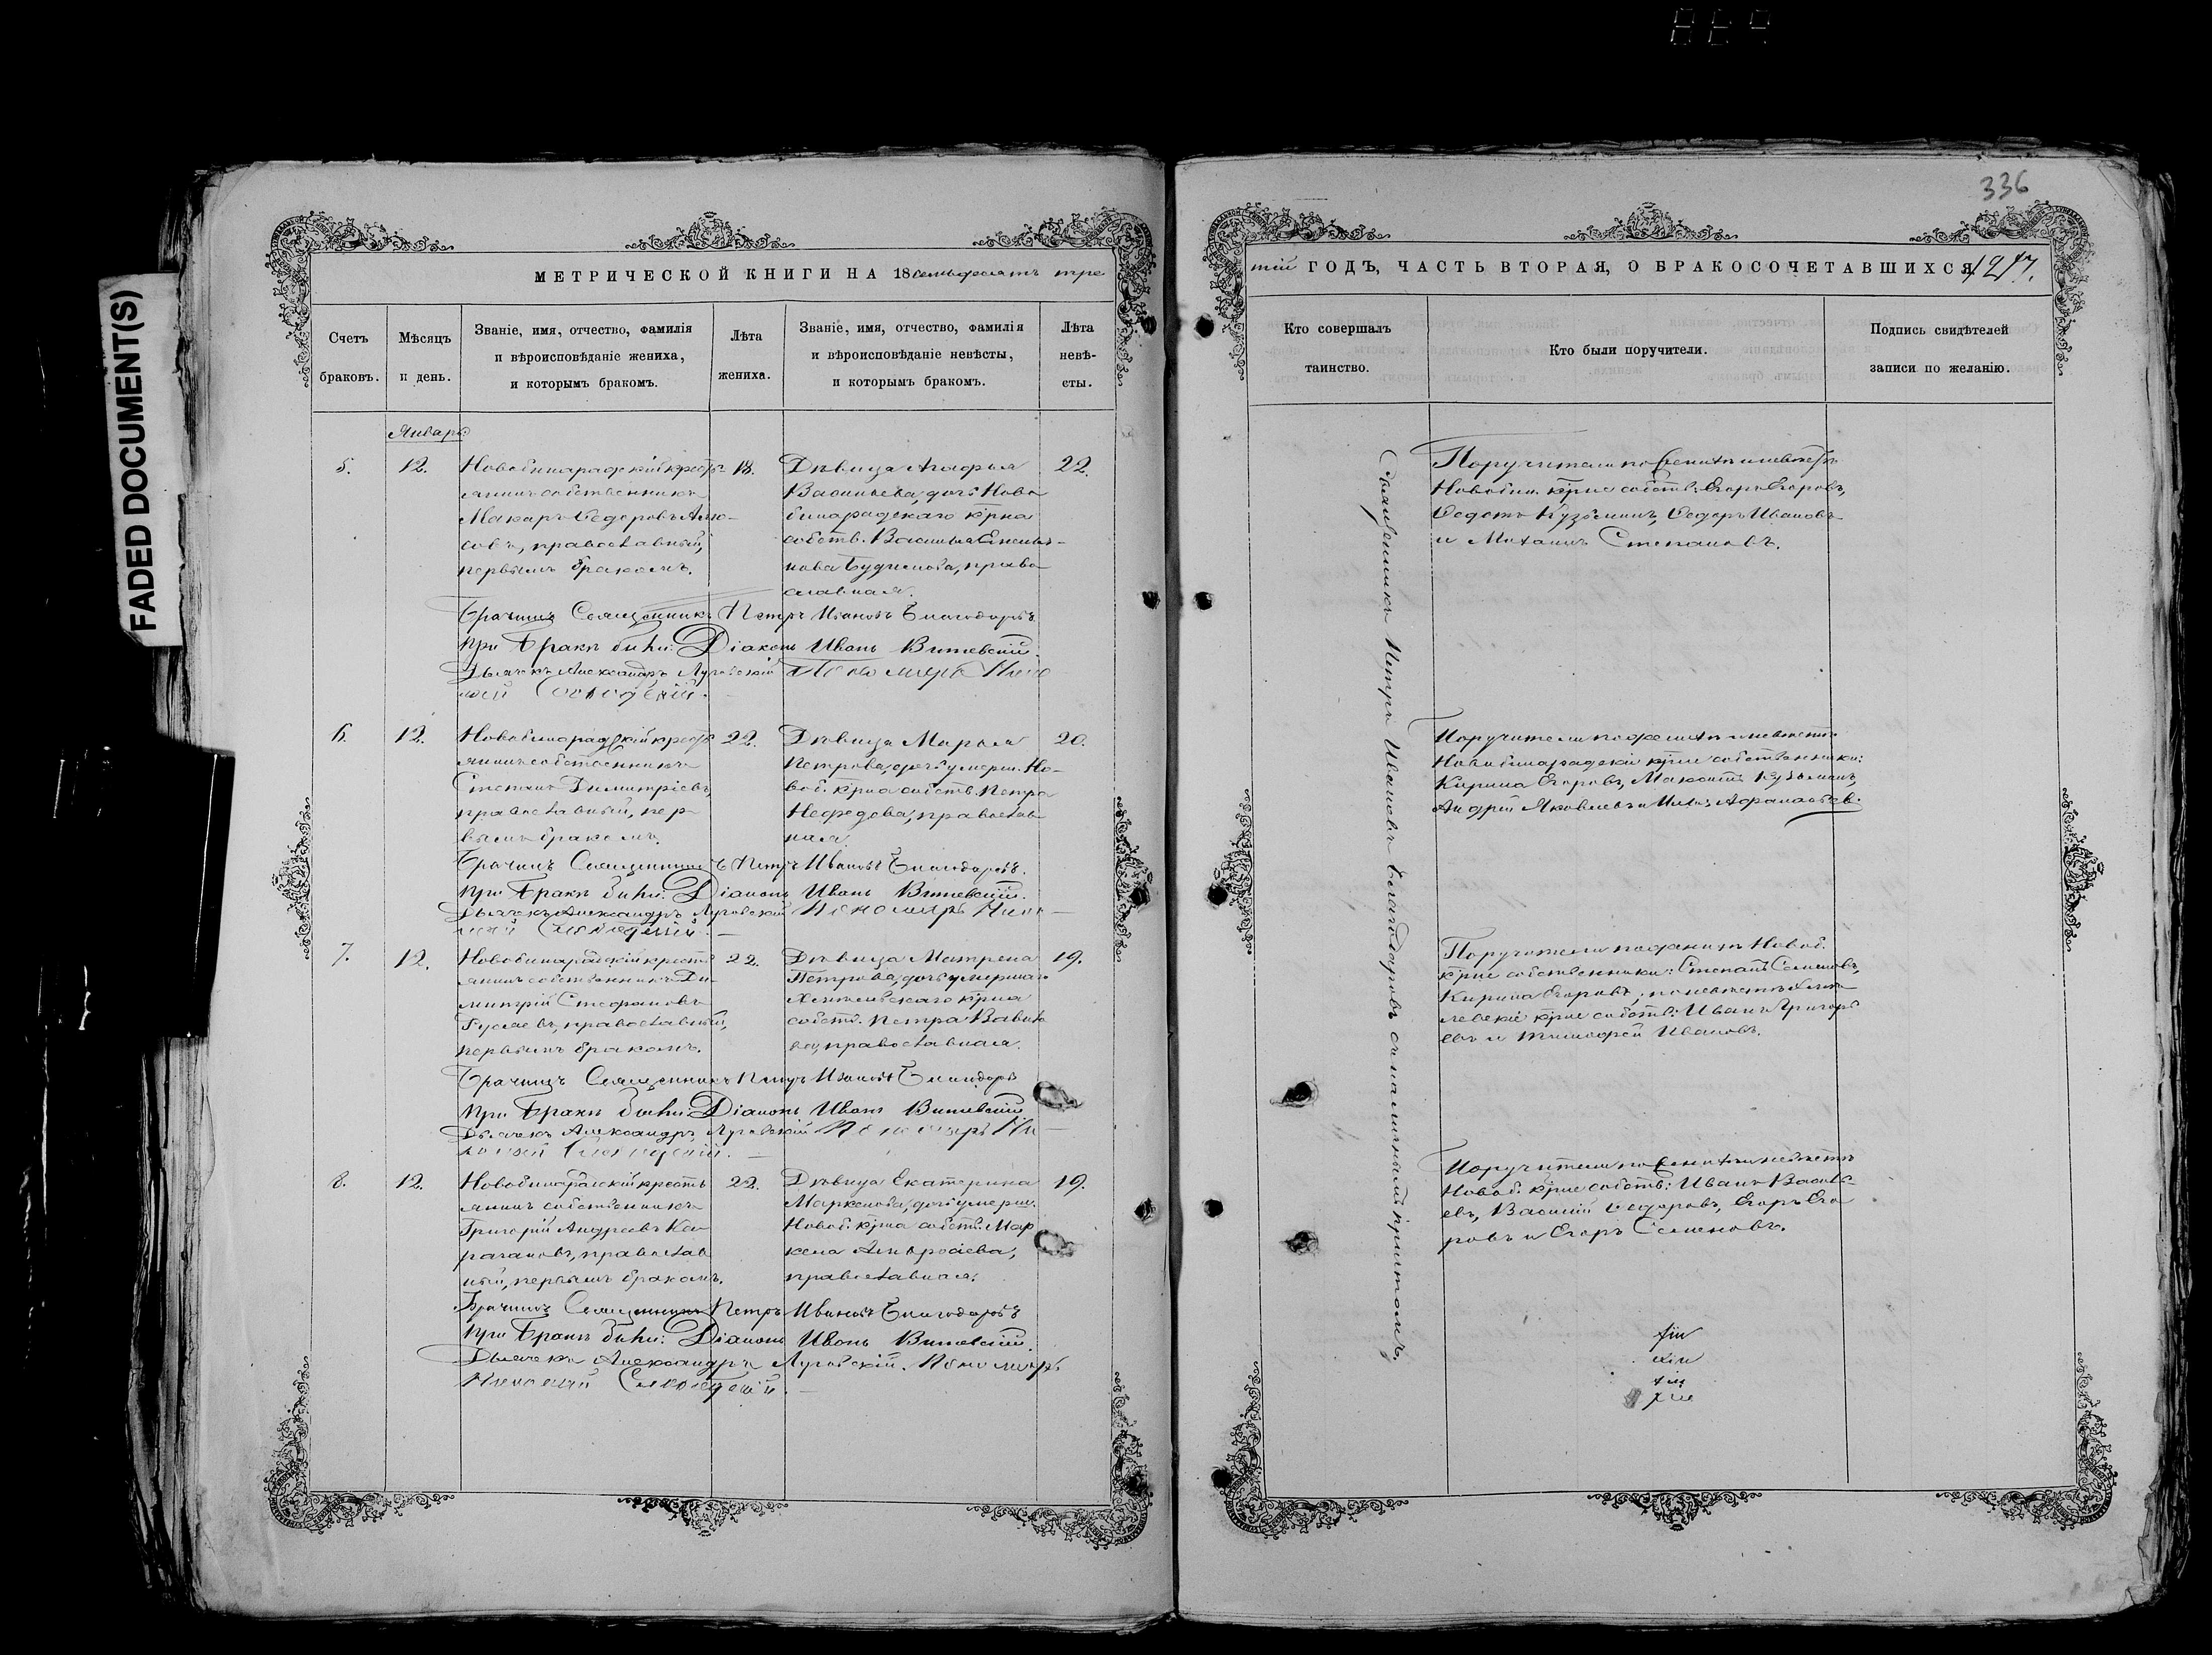 FADED DOCUMENT(S)
336
МЕТРИЧЕСКОЙ КНИГИ НА 18семьдесятъ тре
Счетъ браковъ.
Мѣсяцъ и день.
Званіе, имя, отчество, фамилія
и вѣроисповѣданіе жениха,
и которымъ бракомъ.
Лѣта жениха.
Званіе, имя, отчество, фамилія
и вѣроисповѣданіе невѣсты,
и которымъ бракомъ.
Лѣта невѣ-
сты.
Январь
5. 12.
Новобинарадскій кресть
янинъ собственникъ
Макаръ Ѳедоровъ
православный,
первымъ бракомъ.
18.
Дѣвица Агафья
Васильева, дочь Ново
бинарадскаго кр-на
собств. Василья
православная.
22.
Брачилъ Священникъ Петръ Ивановъ Благодаровъ
при бракѣ были: Діаконъ Иванъ Витевскій.
Дьячекъ Александръ Луговскій Пономарь Нико
лай
6. 12.
Новобинарадскій кресть
янинъ собственникъ
Степанъ Димитріевъ,
православный, пер-
вымъ бракомъ.
22.
Дѣвица Марья
Петрова, дочь умерш. Но-
воб. кр-на собств. Петра
Нефедова, православ
ная.
20.
Брачилъ Священникъ Петръ Ивановъ Благодаровъ.
при бракѣ были: Діаконъ Иванъ Витевскій.
Дьячекъ Александръ Луговскій Пономарь Нико-
лай
7. 12.
Новобинарадскій кресть
янинъ собственникъ Ди-
митрій Стефановъ
православный,
первымъ бракомъ.
22.
Дѣвица Матрена
Петрова, дочь умершаго
кр-на
собств. Петра Вавило
ва, православная.
19.
Брачилъ Священникъ Петръ Ивановъ Благодаровъ
при бракѣ были: Діаконъ Иванъ Витевскій
Дьячекъ Александръ Луговскій Пономарь Ни-
колай
8. 12.
Новобинарадскій кресть
янинъ собственникъ
Григорій Андреевъ Ка-
рагановъ, православ
ный, первымъ бракомъ.
22.
Дѣвица Екатерина
Маркелова, дочь умерш.
Новоб. кр-на собств. Мар
кела Амвросіева,
православная.
19.
Брачилъ Священникъ Петръ Ивановъ Благодаровъ
при бракѣ были: Діаконъ Иванъ Витевскій.
Дьячекъ Александръ Луговскій. Пономарь
Николай
тій ГОДЪ, ЧАСТЬ ВТОРАЯ, О БРАКОСОЧЕТАВШИХСЯ 1217.
Кто совершалъ
таинство.
Кто были поручители.
Подпись свидѣтелей
записи по желанію.
Священникъ Петръ Ивановъ Благодаровъ съ наличнымъ причтомъ.
Поручители по женихѣ и невѣстѣ
Новобин. кр-не собств: Егоръ Егоровъ,
Ѳедотъ Кузьминъ, Ѳедоръ Ивановъ
и Михаилъ Степановъ.
Поручители по женихѣ и невѣстѣ
Новобинарадскіе кр-не собственники:
Кирила Егоровъ, Максимъ Кузьминъ,
Андрей Яковлевъ и Илья Афанасьев.
Поручители по женихѣ Новоб.
кр-не собственники: Степанъ Семеновъ,
Кирила Егоровъ; по невѣстѣ
кр-не собств: Иванъ Григорь
евъ и Тимофей Ивановъ.
Поручители по женихѣ и невѣстѣ
Новоб. кр-не собств: Иванъ Василь-
евъ, Василій Ѳедоровъ, Егоръ Его
ровъ и Егоръ Семеновъ.